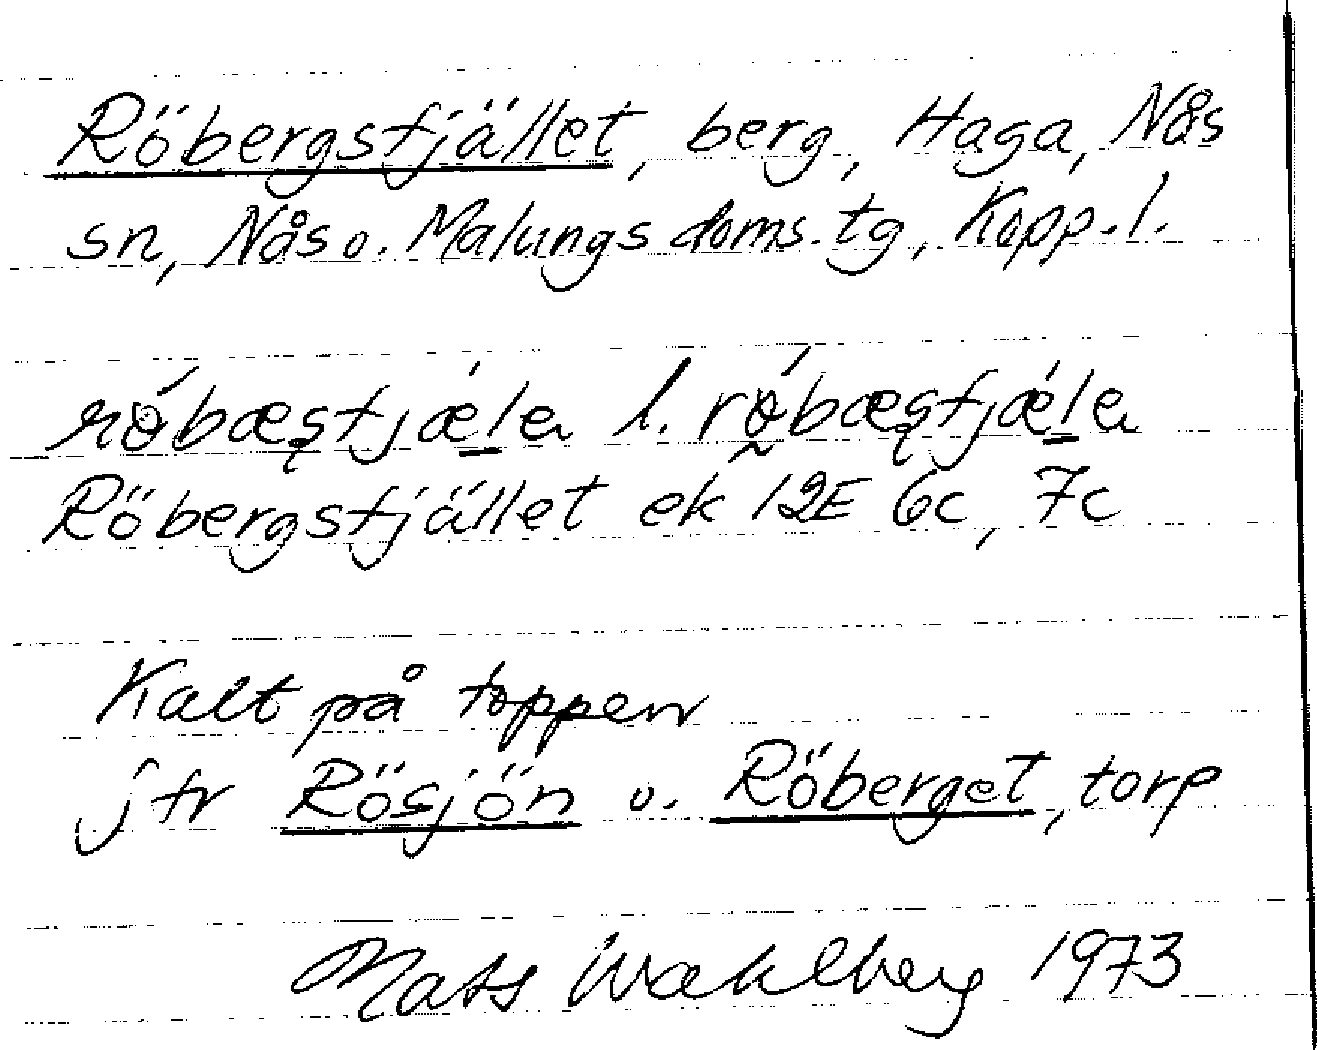 Röbergsfjället, berg, Haga, Nås
sn, Nås o. Malungs doms. tg, Kopp. l.
rǿbæşfjæ̀lea l. rǿbæşfjæ̀lea
Röbergsfjället ek 12E 6c, 7c
Kalt på toppen
jfr Rösjön o. Röberget, torp
Mats Wahlberg 1973